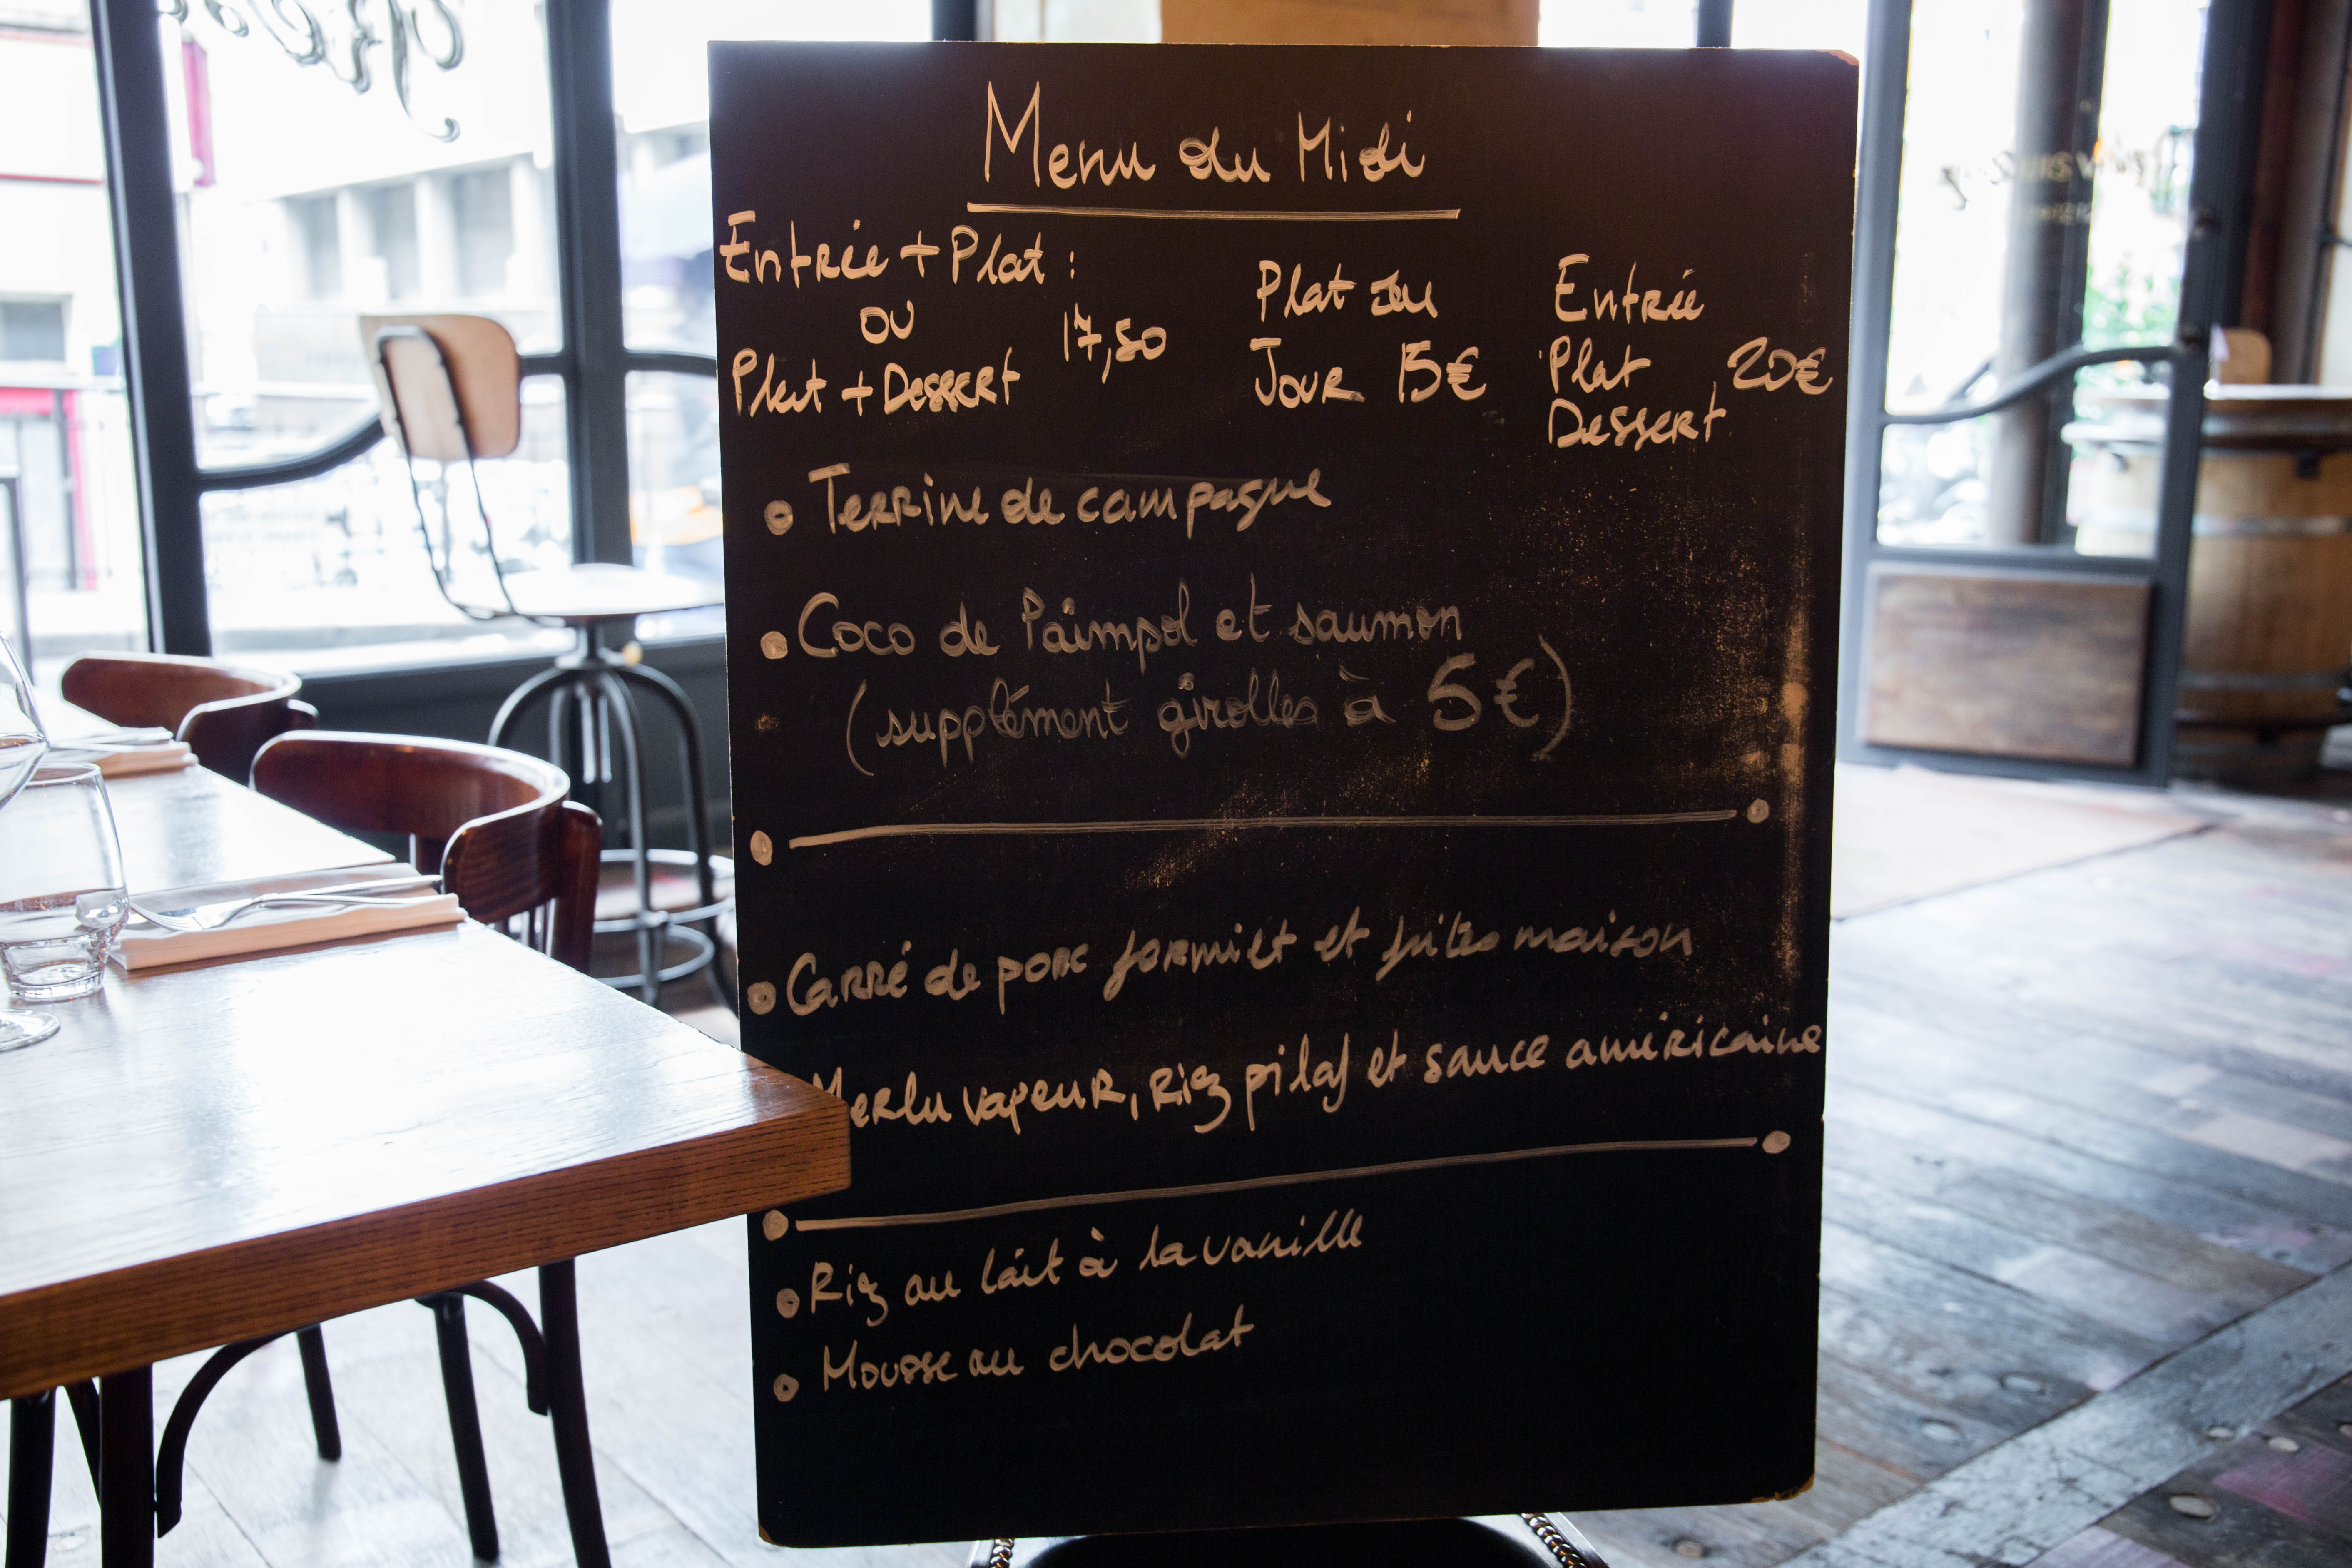 Menu du Midi
Entrée + Plat :
ou
Plat + Dessert
17,50
Plat du
Jour 15€
Entrée
Plat
Dessert
20€
Terrine de campagne
Coco de Païmpol et saumon
(supplément girolles à 5€)
Carré de porc fermier et frites maison
Merlu vapeur, Riz pilaf et sauce américaine
Riz au lait à la vanille
Mousse au chocolat